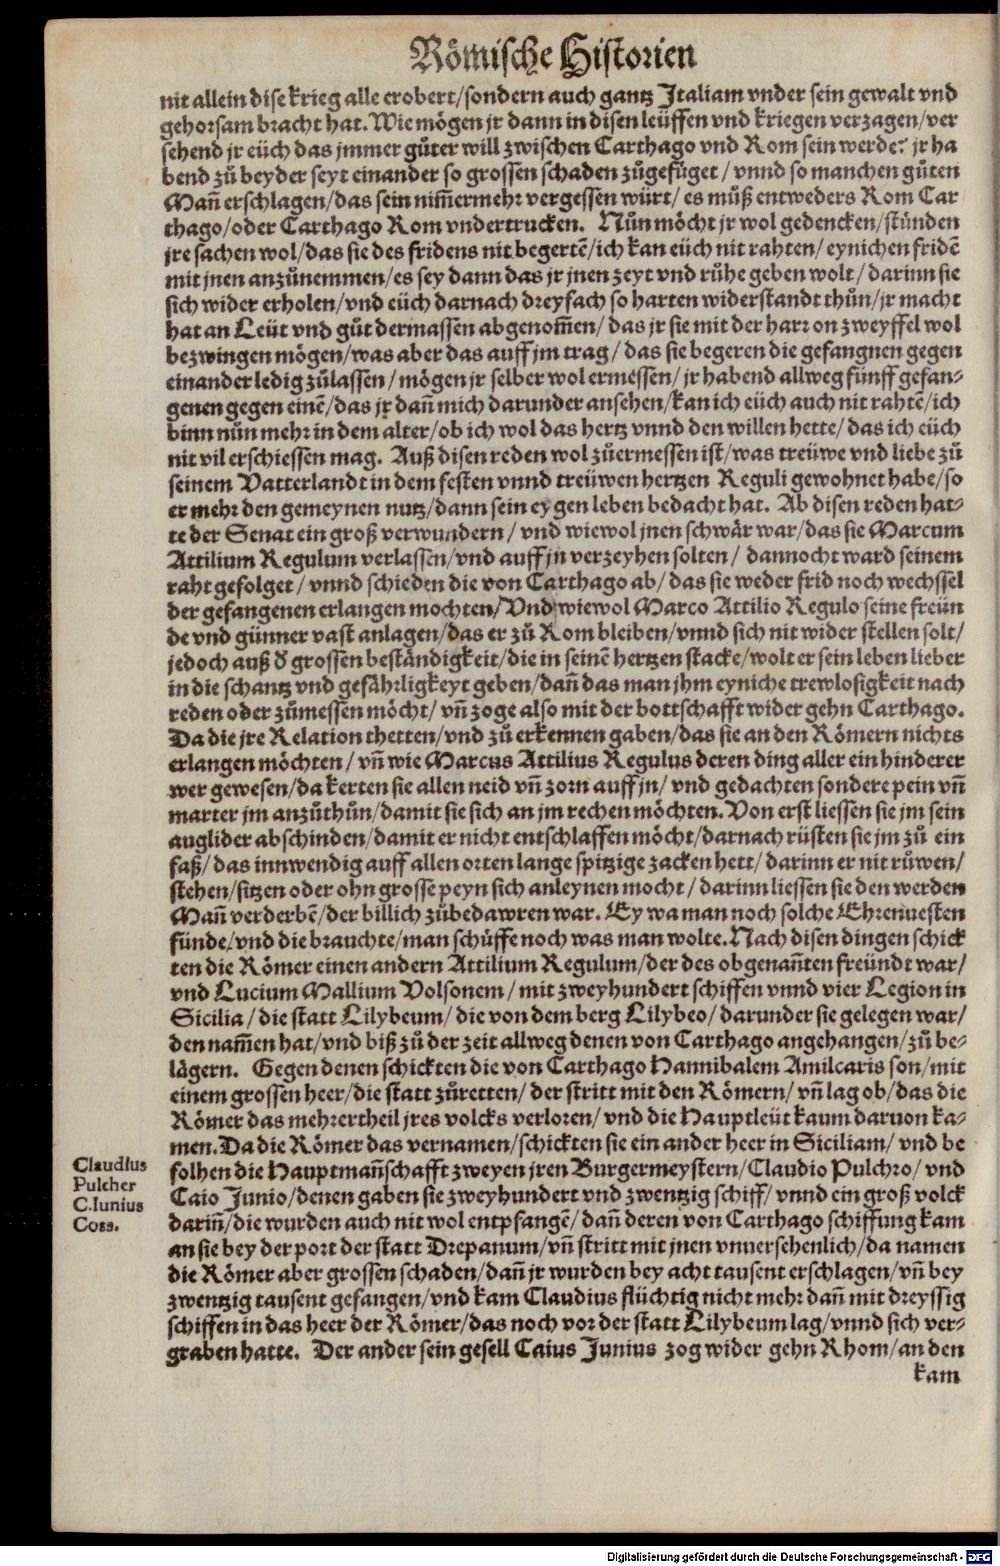 Römische Historien
nit allein dise krieg alle erobert/sondern auch gantz Italiam vnder sein gewalt vnd
gehorsam bracht hat. Wie mögen jr dann in disen leüffen vnd kriegen verzagen/ver
sehend jr eüch das jmmer gůter will zwischen Carthago vnd Rom sein werde? jr ha
bend zů beyder seyt einander so grossen schaden zůgefüget / vnnd so manchen gůten
Mañ erschlagen/das sein nim̃ermehr vergessen würt/ es můß entweders Rom Car
thago/oder Carthago Rom vndertrucken. Nůn möcht jr wol gedencken/stünden
jre sachen wol/das sie des fridens nit begertẽ/ich kan eüch nit rahten/eynichen fridẽ
mit jnen anzůnemmen/es sey dann das jr jnen zeyt vnd růhe geben wolt/ darinn sie
sich wider erholen/vnd eüch darnach dreyfach so harten widerstandt thůn/jr macht
hat an Leüt vnd gůt dermassen abgenom̃en/ das jr sie mit der harr on zweyffel wol
bezwingen mögen/was aber das auff jm trag/ das sie begeren die gefangnen gegen
einander ledig zůlassen / mögen jr selber wol ermessen/ jr habend allweg fünff gefan-
genen gegen einẽ/das jr dañ mich darunder ansehen/kan ich eüch auch nit rahtẽ/ich
binn nůn mehr in dem alter/ob ich wol das hertz vnnd den willen hette/ das ich eüch
nit vil erschiessen mag. Auß disen reden wol zůermessen ist/was treüwe vnd liebe zů
seinem Vatterlandt in dem festen vnnd treüwen hertzen Reguli gewohnet habe/so
er mehr den gemeynen nutz/dann sein eygen leben bedacht hat. Ab disen reden hat-
te der Senat ein groß verwundern / vnd wiewol jnen schwär war/das sie Marcum
Attilium Regulum verlassen/vnd auff jn verzeyhen solten / dannocht ward seinem
raht gefolget / vnnd schieden die von Carthago ab/ das sie weder frid noch wechssel
der gefangenen erlangen mochten/Vnd wiewol Marco Attilio Regulo seine freün
de vnd günner vast anlagen/das er zů Rom bleiben/vnnd sich nit wider stellen solt/
jedoch auß ď grossen beständigkeit/die in seinẽ hertzen stacke/wolt er sein leben lieber
in die schantz vnd gefährligkeyt geben/dañ das man jhm eyniche trewlosigkeit nach
reden oder zůmessen möcht/ vñ zoge also mit der bottschafft wider gehn Carthago.
Da die jre Relation thetten/vnd zů erkennen gaben/das sie an den Römern nichts
erlangen möchten / vñ wie Marcus Attilius Regulus deren ding aller ein hinderer
wer gewesen/da kerten sie allen neid vñ zorn auff jn/ vnd gedachten sondere pein vñ
marter jm anzůthůn/damit sie sich an jm rechen möchten. Von erst liessen sie jm sein
auglider abschinden/damit er nicht entschlaffen möcht/darnach rüsten sie jm zů ein
faß/das innwendig auff allen orten lange spitzige zacken hett/ darinn er nit růwen/
stehen/sitzen oder ohn grosse peyn sich anleynen mocht / darinn liessen sie den werden
Mañ verderbẽ/der billich zůbedawren war. Ey wa man noch solche Ehrenuesten
fünde/vnd die brauchte/man schüffe noch was man wolte. Nach disen dingen schick
ten die Römer einen andern Attilium Regulum/der des obgenañten freündt war/
vnd Lucium Mallium Volsonem / mit zweyhundert schiffen vnnd vier Legion in
Sicilia / die statt Lilybeum/ die von dem berg Lilybeo/ darunder sie gelegen war/
den nam̃en hat/vnd biß zů der zeit allweg denen von Carthago angehangen/zů be-
lägern. Gegen denen schickten die von Carthago Hannibalem Amilcaris son/mit
einem grossen heer/die statt zůretten/ der stritt mit den Römern/ vñ lag ob/das die
Römer das mehrertheil jres volcks verloren/ vnd die Hauptleüt kaum daruon ka-
men. Da die Römer das vernamen/schickten sie ein ander heer in Siciliam/ vnd be
folhen die Hauptmañschafft zweyen jren Burgermeystern/Claudio Pulchro/ vnd
Caio Junio/denen gaben sie zweyhundert vnd zwentzig schiff/ vnnd ein groß volck
dariñ/die wurden auch nit wol entpfangẽ/ dañ deren von Carthago schiffung kam
an sie bey der port der statt Drepanum/vñ stritt mit jnen vnuersehenlich/da namen
die Römer aber grossen schaden/dañ jr wurden bey acht tausent erschlagen/vñ bey
zwentzig tausent gefangen/vnd kam Claudius flüchtig nicht mehr dañ mit dreyssig
schiffen in das heer der Römer/das noch vor der statt Lilybeum lag/vnnd sich ver-
graben hatte. Der ander sein gesell Caius Junius zog wider gehn Rhom/an den
kam
Claudius
Pulcher
C.Iunius
Coss.
Digitalisierung gefördert durch die Deutsche Forschungsgemeinschaft - DFG